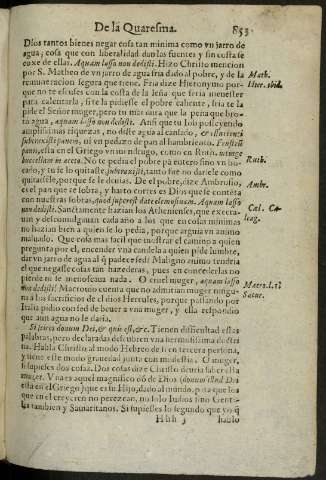 De la Quaresma. 853
Dios tantos bienes negar cosa tan minima como vn jarro de
agua, cosa que con liberalidad dan las fuentes y sin costa se
coxe de ellas. Aquam lasso non dedisti. Hizo Christo mencion
por S. Matheo de vn jarro de agua fria dado al pobre, y de la
Math.
remuneracion segura que tiene. Fria dize Hieronymo porque
Hier. ibid.
no te escuses con la costa de la leña que seria menester
para calentarla, si te la pidiesse el pobre caliente, fria te la
pide el Señor muger, pero tu mas
agua, aquam lasso non dedisti. Assi que tu Iob posseyendo
amplissimas riquezas, no diste agua al cansado, & esurienti
subtraxisti panem, ni vn pedazo de pan al hambriento.
pani, esta en el Griego vn como en Ruth.
buccellam in aceto. No te pedia el pobre pã entero sino vn
Ruth.
y tu se lo quitaste, subtraxisti, tanto fue no darsele como
quitarsele, porque se le deuias. De el pobre, dize Ambrosio,
Ambr.
es el pan que te sobra, y harto cortes es Dios que se contẽta
con nuestras sobras, quod superest date eleemosynam. Aquam lasso
non dedisti. Sanctamente hazian los Athenienses, que
Cæl. Ca-
y descomulgauan cada año a los que en cosas minimas
no hazian bien a quien se lo pedia, porque arguia vn animo
maluado. Que cosa mas facil que mostrar el camino a quien
pregunta por el, encender vna candela a quien pide lumbre,
dar vn jarro de agua al q̃ padece sed? Maligno animo tendria
el que negasse cosas tan hazederas, pues en concederlas no
pierde ni se menoscaua nada. O cruel muger, aquam lasso
Macro. l. 1.
non dedisti. Macrobio cuenta que no admitian muger
Satur.
a los sacrificios de el dios Hercules, porque passando por
Italia pidio con sed de beuer a vna muger, y ella respondio
que aun agua no le daria.
Si scires donum Dei, & quis est, &c. Tienen dificultad estas
palabras, pero declaradas descubren vna hermosissima
Habla Christo al modo Hebreo de si en tercera persona,
y tiene este modo grauedad junto con modestia. O muger,
si supiesses dos cosas. Dos cosas dize Christo deuria saber esta
muger. Vna es aquel magnifico dõ de Dios (donum illud Dei
esta en el Griego) que es su Hijo, dado al mundo, para que los
que en el creyeren no perezcan, no solo Iudios sino Genti-
les tambien y Samaritanos. Si supiesses lo segundo que yo q̃
Hhh 3 hablo